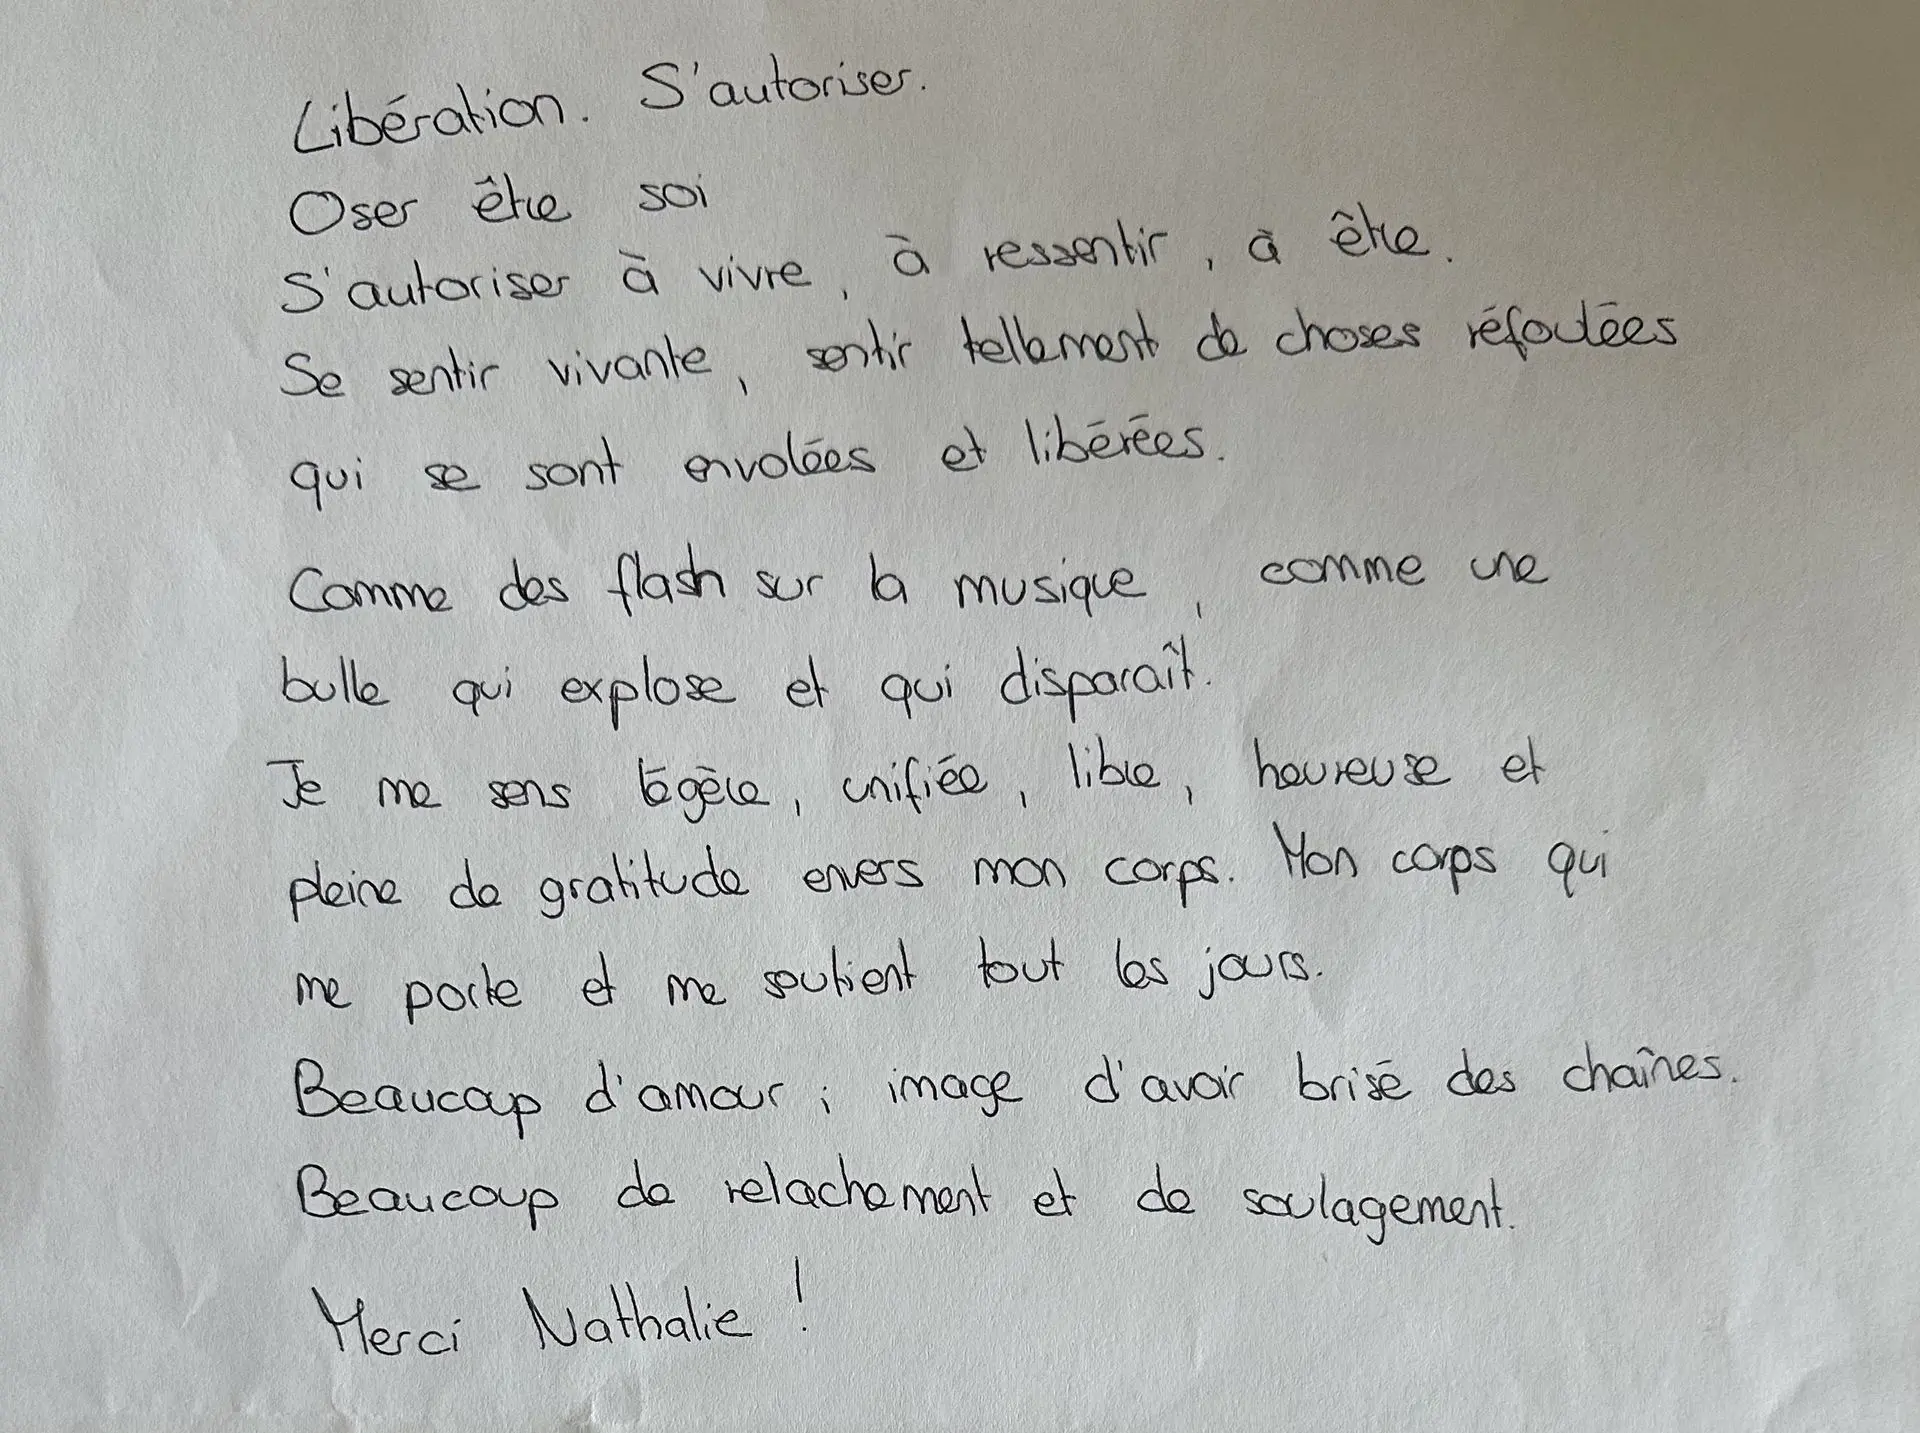 Libération. S'autoriser.
Oser être soi
S'autoriser à vivre, à ressentir, à être.
Se sentir vivante, sentir tellement de choses réfoulées
qui se sont envolées et libérées.
Comme des flash sur la musique, comme une
bulle qui explose et qui disparaît.
Je me sens légère, unifiée, libre, heureuse et
pleine de gratitude envers mon corps. Mon corps qui
me porte et me soutient tout les jours.
Beaucoup d'amour ; image d'avoir brisé des chaînes.
Beaucoup de relachement et de soulagement.
Merci Nathalie !